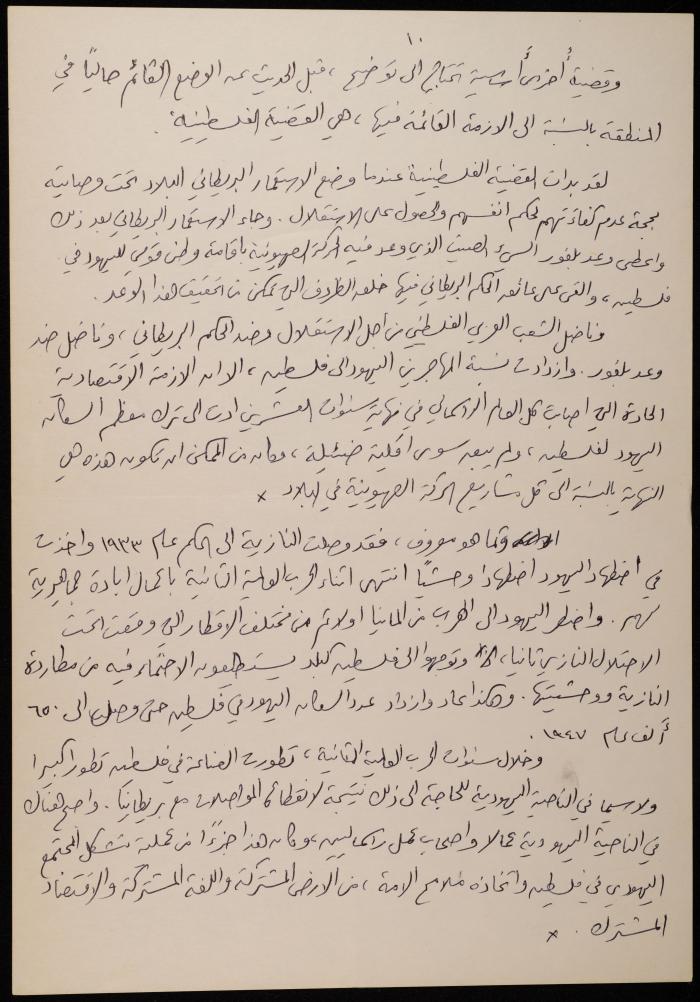 ١٠
وقضية أخرى أساسية تحتاج الى توضيح ، قبل الحديث عن الوضع القائم حالياً في
المنطقة بالنسبة الى الازمة القائمة فيها ، هي القضية الفلسطينية .
لقد بدات القضية الفلسطينية عندما وضع الاستعمار البريطاني البلاد تحت وصايته
بحجة عدم كفاءتهم لحكم انفسهم والحصول على الاستقلال . وجاء الاستعمار البريطاني بعد ذلك
واعطى وعد بلفور السيء الصيت الذي وعد فيه الحركة الصهيونية باقامة وطن قومي لليهود في
فلسطين ، والقى على عاتق الحكم البريطاني فيها خلق الظروف التي تمكن من تحقيق هذا الوعد .
وناضل الشعب العربي الفلسطيني من أجل الاستقلال وضد الحكم البريطاني ، وناضل ضد
وعد بلفور . وازدادت نسبة المهاجرين اليهود الى فلسطين ، الا ان الازمة الاقتصادية
الحادة التي اصابت كل العالم الراسمالي في نهاية سنوات العشرين ادت الى ترك معظم السكان
اليهود لفلسطين ، ولم يبق سوى اقلية ضئيلة ، وكان من الممكن ان تكون هذه هي
النهاية بالنسبة الى كل مشاريع الحركة الصهيونية في البلاد ×
وكما هو معروف ، فقد وصلت النازية الى الحكم عام ١٩٣٣ واخذت
في اضطهاد اليهود اضطهادا وحشيًا انتهى اثناء الحرب العالمية الثانية باعمال ابادة جماهيرية
لهم . واضطر اليهود الى الهرب من المانيا اولا ثم من مختلف الاقطار التي وقعت تحت
الاحتلال النازي ثانيا ، وتوجهوا الى فلسطين كبلد يستطيعون الاحتماء فيه من مطاردة
النازية ووحشيتها . وهكذا عاد وازداد عدد السكان اليهود في فلسطين حتى وصل الى ٦٥٠
ألف عام ١٩٤٧ .
وخلال سنوات الحرب العالمية الثانية ، تطورت الصناعة في فلسطين تطورا كبيرا
ولا سيما في الناحية اليهودية للحاجة الى ذلك نتيجة لانقطاع المواصلات مع بريطانيا . واصبح هناك
في الناحية اليهودية عمالا واصحاب عمل راسماليين ، وكان هذا جزءًا من عملية تشكل المجتمع
اليهودي في فلسطين واتخاذه ملامح الامة ، من الارض المشتركة واللغة المشتركة والاقتصاد
المشترك . ×